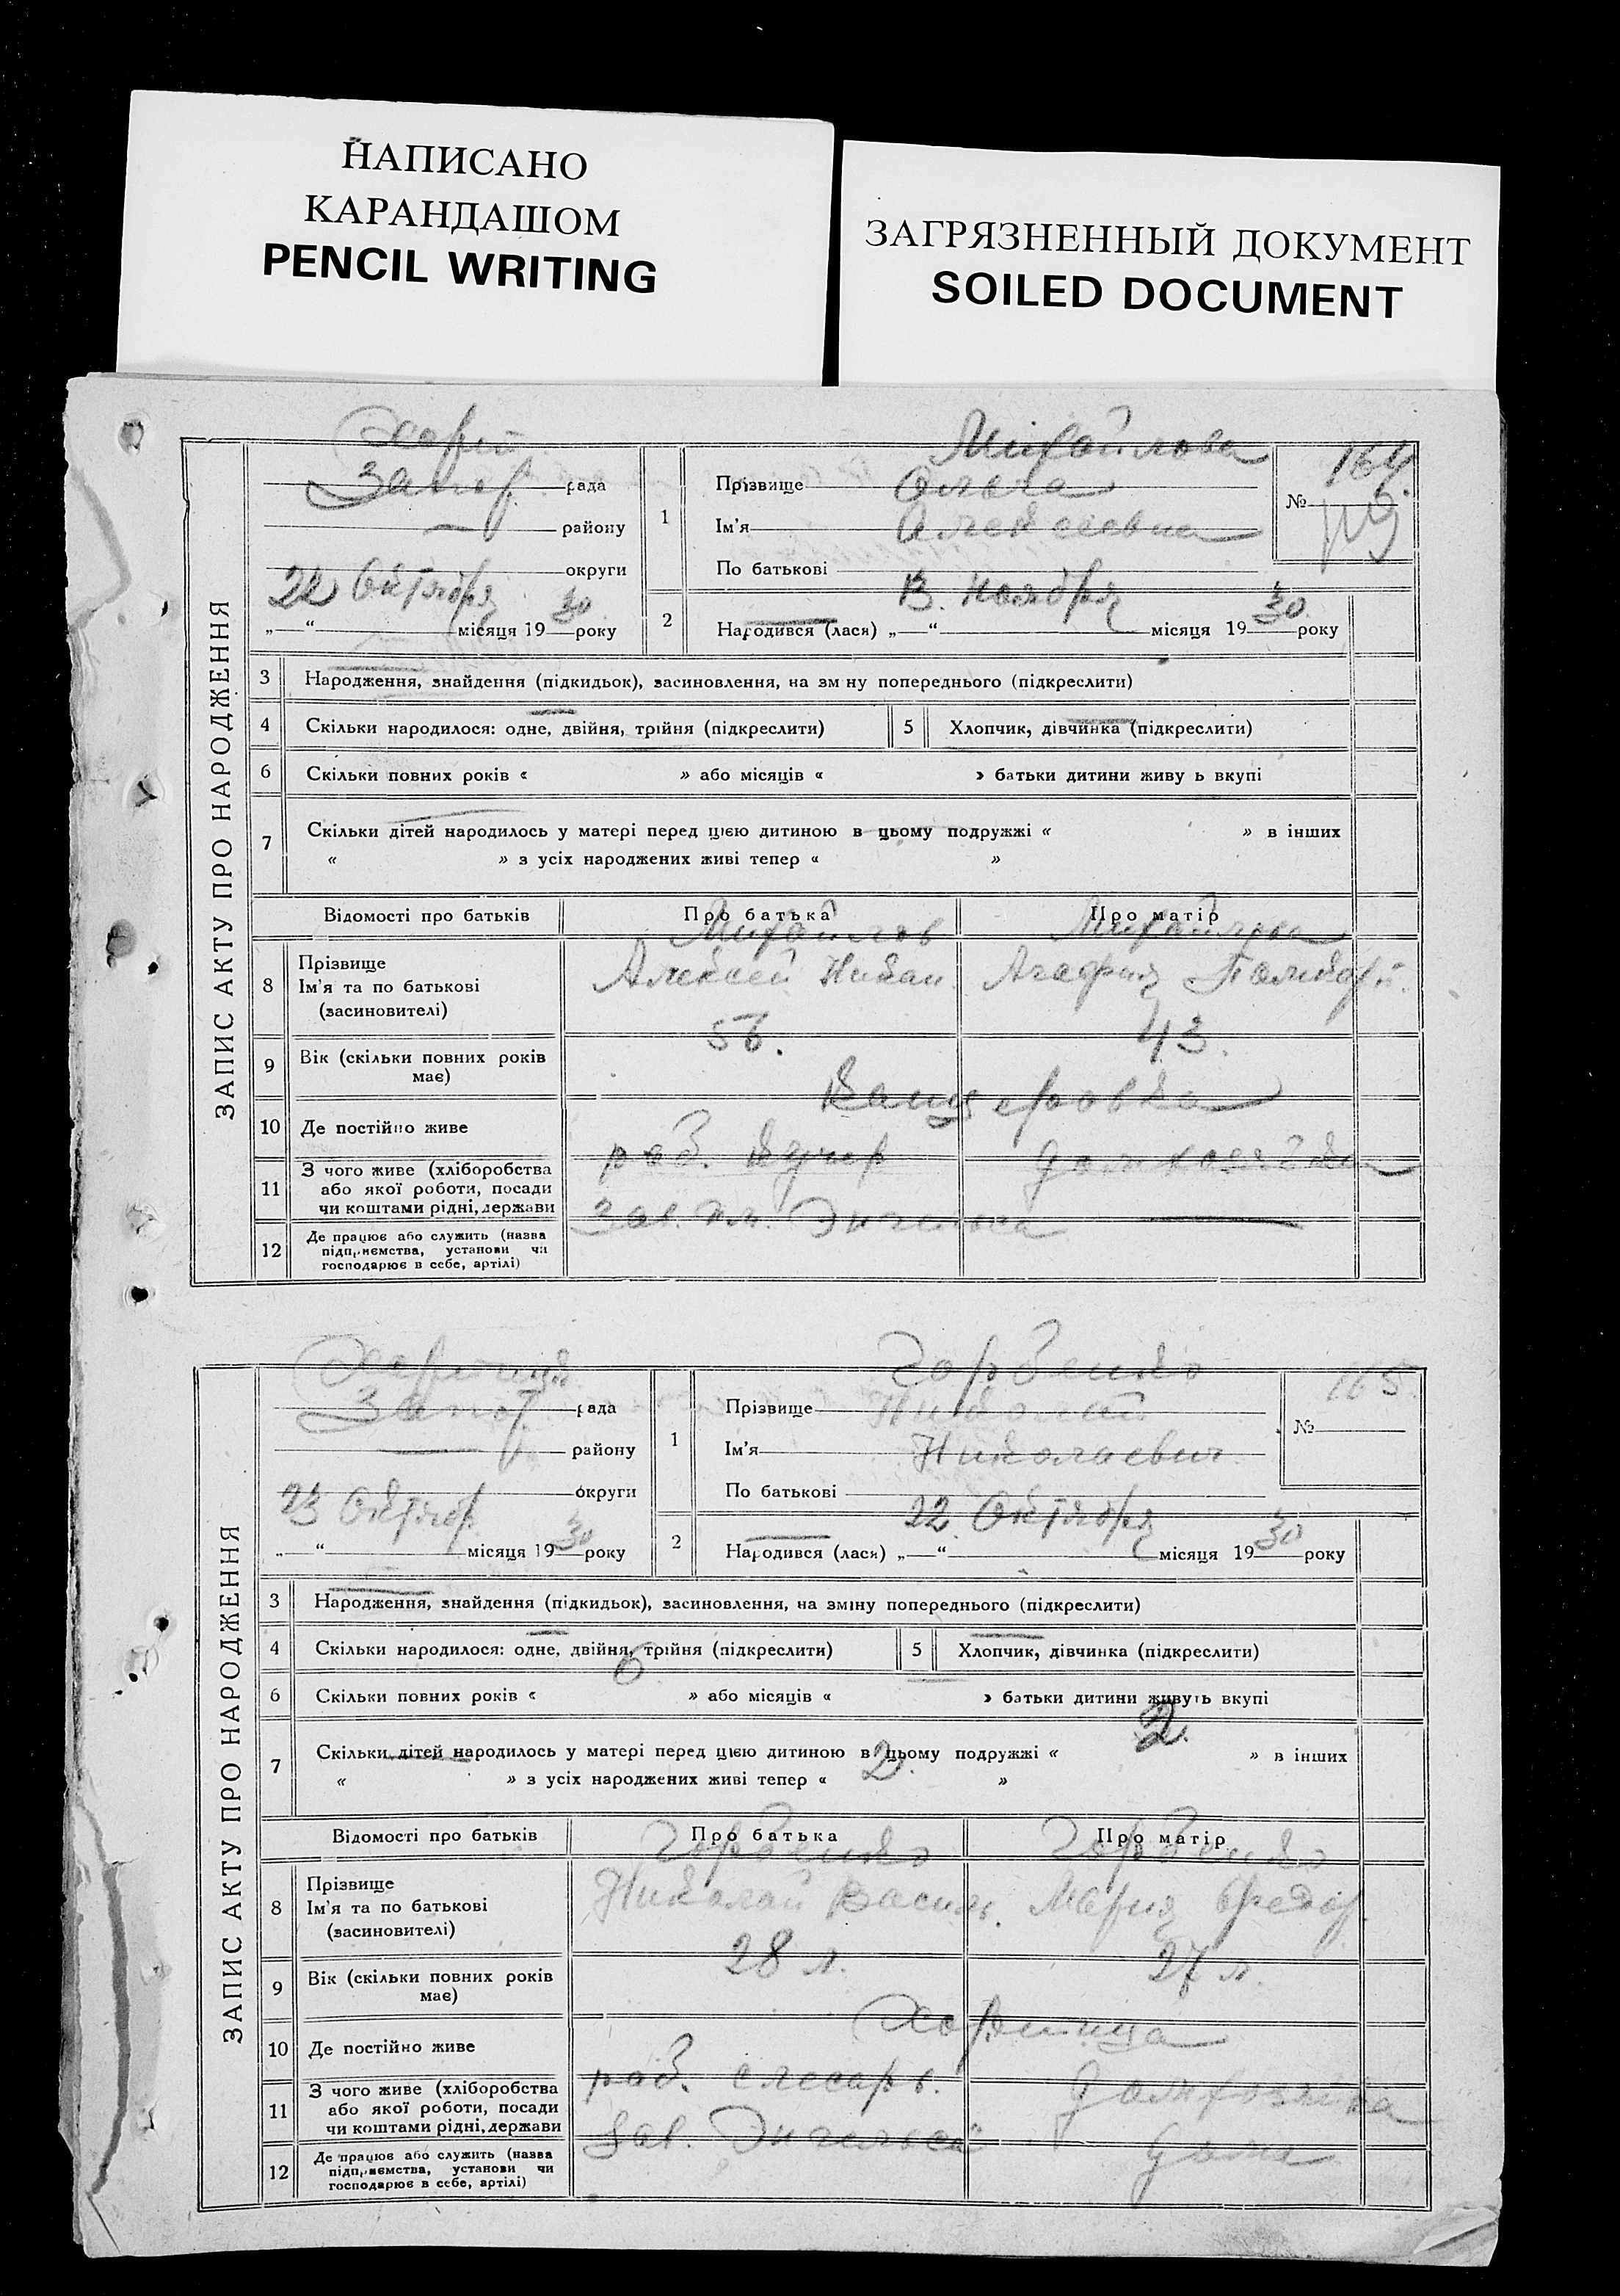 НАПИСАНО
КАРАНДАШОМ
PENCIL WRITING
ЗАГРЯЗНЕННЫЙ ДОКУМЕНТ
SOILED DOCUMENT
ЗАПИС АКТУ ПРО НАРОДЖЕННЯ
Запор. рада
району
округи
22 Октября
„—“ місяця 1930 року
1
Михайлова
Прізвище Ольга
Ім'я Алексеевна
По батькові
№ 164
2
13. ноября
Народився (лася) „—“ місяця 1930 року
3 Народження, знайдення (підкидьок), засиновлення, на зм ну попереднього (підкреслити)
4 Скільки народилося: одне, двійня, трійня (підкреслити) 5 Хлопчик, дівчинка (підкреслити)
6 Скільки повних років « » або місяців « » батьки дитини живу ь вкупі
7 Скільки дітей народилось у матері перед цією дитиною в цьому подружжі « » в інших
« » з усіх народжених живі тепер « »
Відомості про батьків Про батька Про матір
Михайлов Михайлова
8 Прізвище
Ім'я та по батькові
(засиновителі)
Алексей Агафия
9 Вік (скільки повних років
має)
43.
10 Де постійно живе
11 З чого живе (хліборобства
або якої роботи, посади
чи коштами рідні, держави
раб. домхозяйка
12 Де працює або служить (назва
підприємства, установи чи
господарює в себе, артілі)
Зав. им. Энгельса
ЗАПИС АКТУ ПРО НАРОДЖЕННЯ
Хортиця
Запор. рада
району
округи
23 Октябр.
„ “ місяця 1930 року
1
Горбенко
Прізвище Николай
Ім'я Николаевич
По батькові
№ 165
2
22. Октября
Народився (лася) „—“ місяця 1930 року
3 Народження, знайдення (підкидьок), засиновлення, на зміну попереднього (підкреслити)
4 Скільки народилося: одне, двійня, трійня (підкреслити) 5 Хлопчик, дівчинка (підкреслити)
6 Скільки повних років « 6 » або місяців « » батьки дитини живуть вкупі
7 Скільки дітей народилось у матері перед цією дитиною в цьому подружжі « 2. » в інших
« » з усіх народжених живі тепер « 2. »
Відомості про батьків Про батька Про матір
Горбенко Горбенко
8 Прізвище
Ім'я та по батькові
(засиновителі)
Николай Василь. Мария Федор.
9 Вік (скільки повних років
має)
28 л. 27 л.
10 Де постійно живе
Хортица
11 З чого живе (хліборобства
або якої роботи, посади
чи коштами рідні, держави
раб. слесарь. домхозяйка
12 Де працює або служить (назва
підприємства, установи чи
господарює в себе, артілі)
Зав. Энгельса дома